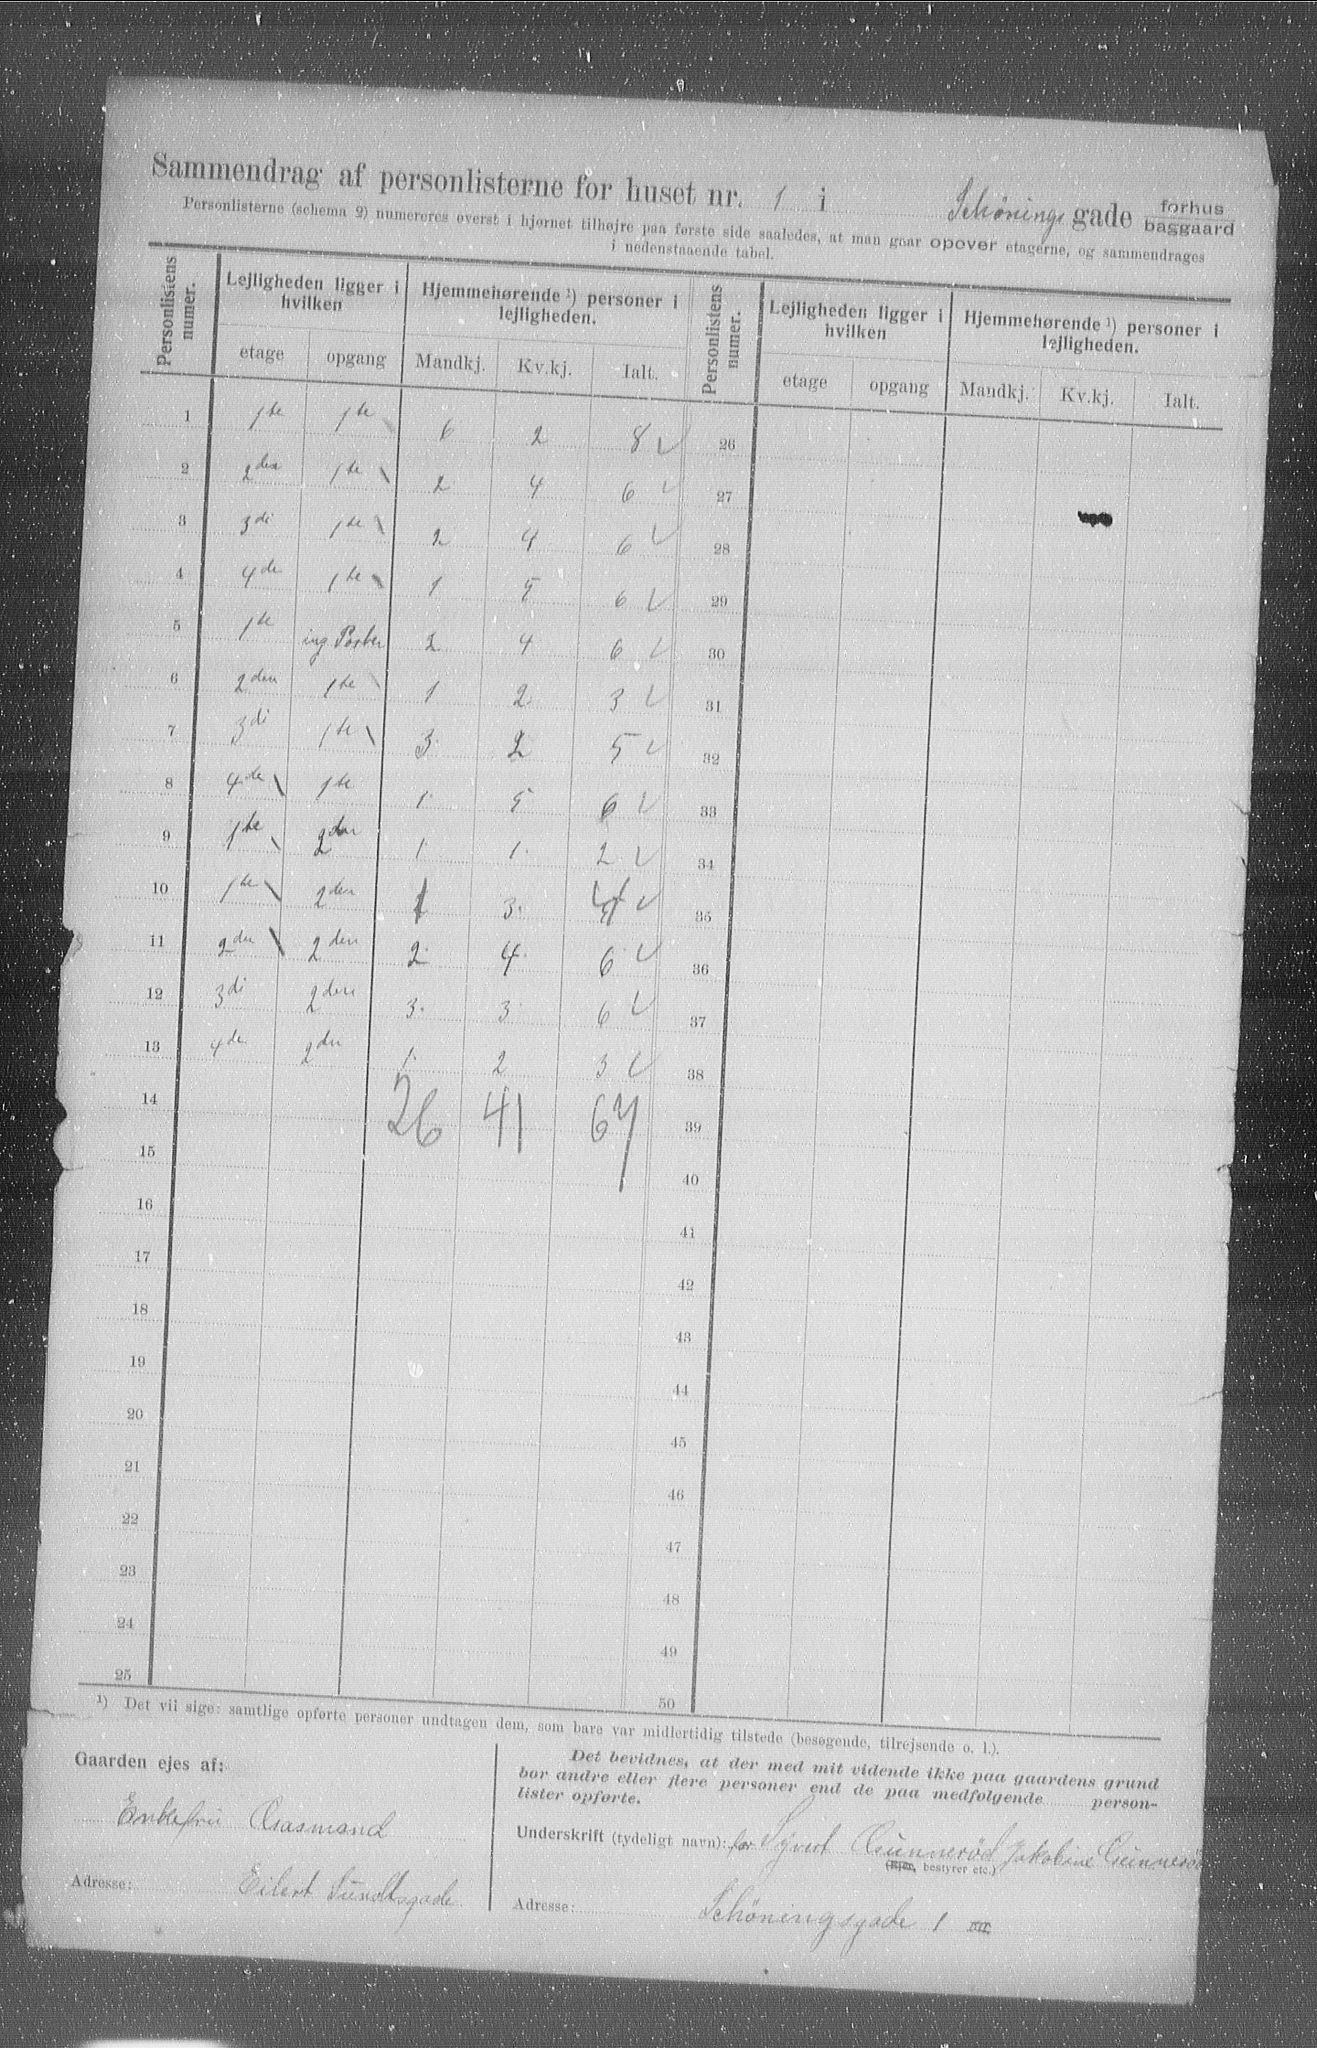 Sammendrag af personlisterne for huset nr. 1 i Schönings gade forhus baggaard
Personlisterne (schema 2) numereres øverst i hjørnet tilhøjre paa første side saaledes, at man gaar opover etagerne, og sammendrages
i nedenstaaende tabel.
Personlistens numer. Lejligheden ligger i hvilken Hjemmehørende ¹) personer i lejligheden. Personlistens numer. Lejligheden ligger i hvilken Hjemmehørende ¹) personer i lejligheden.
etage opgang Mandkj. Kv.kj. Ialt. etage opgang Mandkj. Kv.kj. Ialt.
1 1ste 1ste 6 2 8 26
2 2den 1ste 2 4 6 27
3 3di 1ste 2 4 6 28
4 4de 1ste 1 5 6 29
5 1ste 2 4 6 30
6 2den 1ste 1 2 3 31
7 3di 1ste 3 2 5 32
8 4de 1ste 1 5 6 33
9 1ste 2den 1 1 2 34
10 1ste 2den 1 3 4 35
11 2den 2den 2 4 6 36
12 3di 2den 3 3 6 37
13 4de 2den 1 2 3 38
14 26 41 67 39
15 40
16 41
17 42
18 43
19 44
20 45
21 46
22 47
23 48
24 49
25 50
¹) Det vil sige: samtlige opførte personer undtagen dem, som bare var midlertidig tilstede (besøgende, tilrejsende o. l.).
Gaarden ejes af:
Enkefru Aasmand
Adresse: Eilert Sundtsgade
Det bevidnes, at der med mit vidende ikke paa gaardens grund
bor andre eller flere personer end de paa medfølgende person-
lister opførte.
Underskrift (tydeligt navn): for Syvert Gunnerød Jakobine Gunnerød
(Ejer, bestyrer etc.)
Adresse: Schöningsgade 1